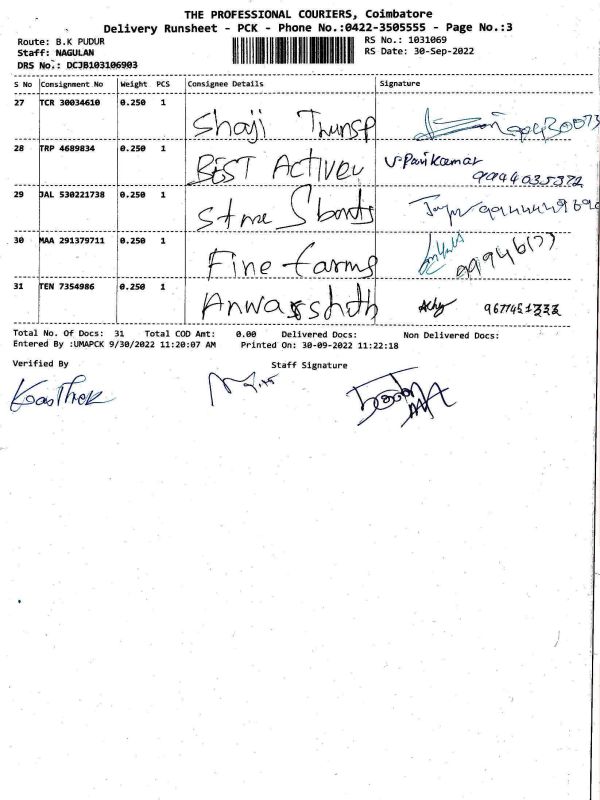 THE PROFESSIONAL COURIERS, Coimbatore
Delivery Runsheet - PCK - Phone No.:0422-3505555 - Page No.:3
Route: B.K PUDUR RS No.: 1031069
Staff: NAGULAN RS Date: 30-Sep-2022
DRS No.: DCJB103106903
S No Consignment No Weight PCS Consignee Details Signature
27 TCR 30034610 0.250 1 Shaji
28 TRP 4689834 0.250 1 BEST 9944035372
29 JAL 530221738 0.250 1
30 MAA 291379711 0.250 1 Fine farms
31 TEN 7354986 0.250 1
Total No. Of Docs: 31 Total COD Amt: 0.00 Delivered Docs: Non Delivered Docs:
Entered By :UMAPCK 9/30/2022 11:20:07 AM Printed On: 30-09-2022 11:22:18
Verified By Staff Signature